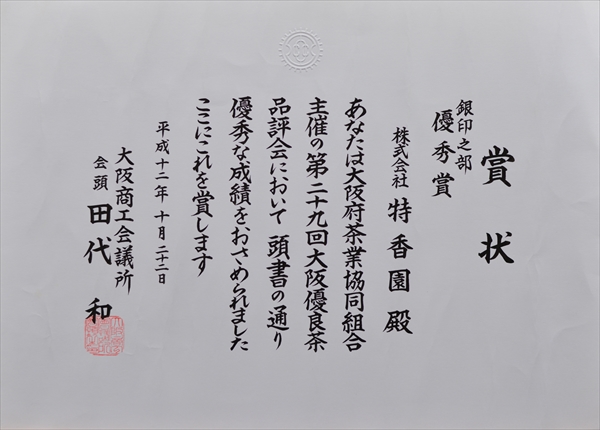 賞状
銀印之部
優秀賞
株式会社 特香園殿
あなたは大阪府茶業協同組合
主催の第二十九回大阪優良茶
品評会において 頭書の通り
優秀な成績をおさめられました
ここにこれを賞します
平成十二年 十月 二十二日
大阪商工会議所
会頭 田代 和